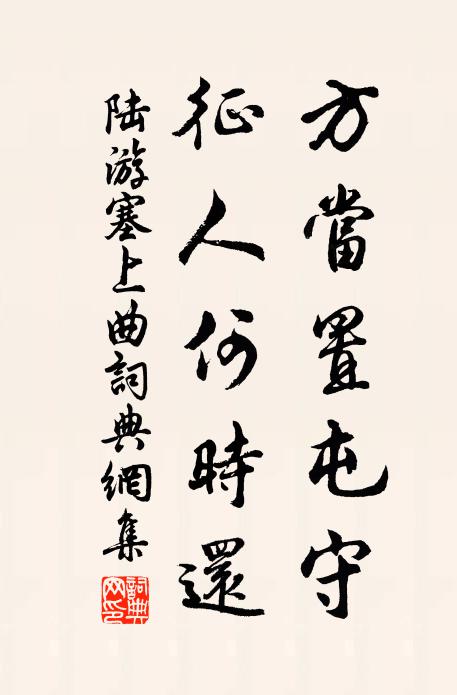 方當置屯守
征人何時還
陆游塞上曲詞典網集
詞典网印